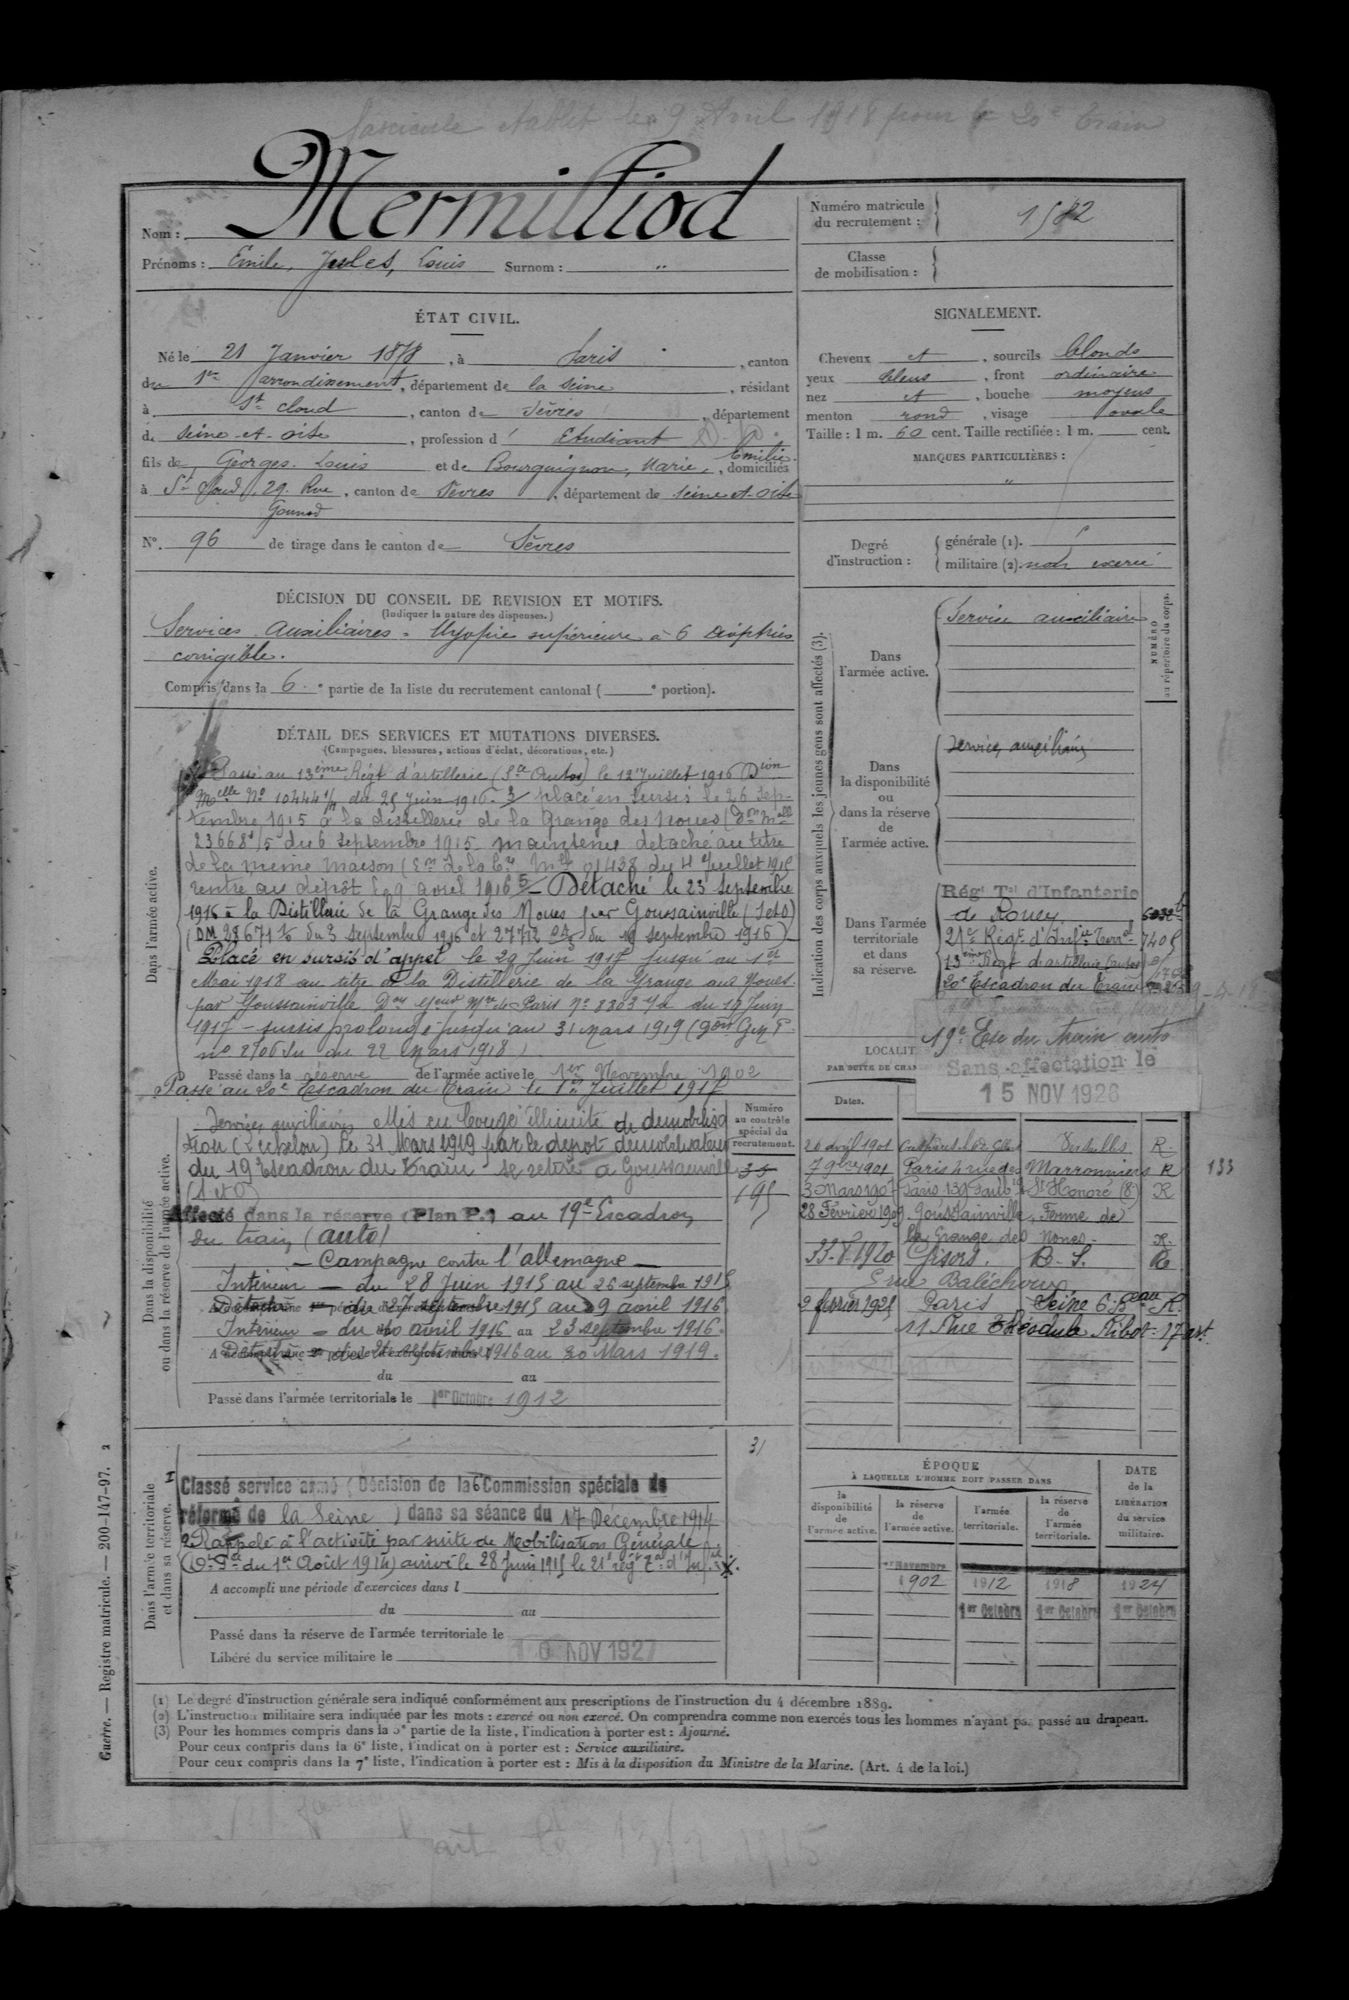 fascicule établit le 9 Avril 1918 pour le 20e train
Mermilliod
Nom :
Prénoms : Emile, Jules, Louis Surnom : "
Numéro matricule
du recrutement : 1582
Classe
de mobilisation :
ÉTAT CIVIL.
Né le 21 Janvier 1878, à Paris, canton
du 1er arrondissement, département de la Seine, résidant
à St Cloud, canton de Sèvres, département
de Seine-et-Oise, profession d' Etudiant
fils de Georges Louis et de Bourguignon, Marie, Emilie, domiciliés
à St Cloud, 29 Rue, canton de Sèvres, département de Seine et-Oise
Gounod
N°. 96 de tirage dans le canton de Sèvres
SIGNALEMENT.
Cheveux et, sourcils blonds
yeux bleus, front ordinaire
nez et, bouche moyens
menton rond, visage ovale
Taille : 1 m. 60 cent. Taille rectifiée : 1 m. cent.
MARQUES PARTICULIÈRES :
"
Degré
d'instruction :
générale (1).
militaire (2). non exercé
DÉCISION DU CONSEIL DE REVISION ET MOTIFS.
(Indiquer la nature des dispenses.)
Services Auxiliaires = Myopie supérieure à 6 dioptries
corrigible.
Compris dans la 6e partie de la liste du recrutement cantonal ( e portion).
DÉTAIL DES SERVICES ET MUTATIONS DIVERSES.
(Campagnes, blessures, actions d'éclat, décorations, etc.)
Dans l'armée active.
Passé au 13ème Régt d'artillerie (Son Autos) le 12 Juillet 1916 Dion
Melle No 10444 1/4 du 25 Juin 1916. 3/ placé en sursis le 26 sep-
tembre 1915 à la distillerie de la Grange des Noues (Don Melle
23668 1/5 du 6 septembre 1915 maintenu détaché au titre
de la même maison du 4 Juillet 1915
rentré au dépôt le 9 avril 1916 5/- Détaché le 23 Septembre
1916 à la Distillerie de la Grange des Noues par Goussainville (S et O)
(DM 28671 du 3 septembre 1916 et 27712 du 19 septembre 1916)
Placé en sursis d'appel le 29 Juin 1917 jusqu'au 1er
Mai 1918 au titre de la Distillerie de la Grange aux Noues
par Goussainville Paris No 8303 du 19 Juin
1917 - sursis prolongé jusqu'au 31 mars 1919
no 2706 du 22 mars 1918)
Passé dans la réserve de l'armée active le 1er Novembre 1902
Passé au 20e Escadron du Train le 1er Juillet 1917
Indication des corps auxquels les jeunes gens sont affectés (3).
NUMÉRO
au répertoire du corps.
Dans
l'armée active.
Service auxiliaire
Dans
la disponibilité
ou
dans la réserve
de
l'armée active.
Service auxiliaire
Dans l'armée
territoriale
et dans
sa réserve.
Régt Tal d'Infanterie
de Rouen
21e Régt d'Infie Terrale 7405
13ème Régt d'artillerie (autos)
20e Escadron du Train
19e Esc du train auto
Sans affectation le
15 NOV 1926
LOCALIT
PAR SUITE DE CHAN
Dates.
20 avril 1901 Versailles R
7 9bre 1901 Paris 4 rue des Marronniers R 133
3 Mars 1907 Paris 139 Faubg St Honoré (8) R
28 Février 1909 Goussainville, Ferme de
la Grange des Noues R.
1920 Gisors. R. S. R
5 rue Baléchoux
2 février 1925 Paris Seine 6e Beau R.
11 Rue Théodule Ribot 17 art
Dans la disponibilité
ou dans la réserve de l'armée active.
Numéro
au contrôle
spécial du
recrutement.
35
195
Services auxiliaires Mis en Congé illimité de demobilisa
tion (2e échelon) le 31 Mars 1919 par le depot demobilisateur
du 19e Escadron du Train se retire à Goussainville
(S et O)
Affecté dans la réserve (Plan P.) au 19e Escadron
du train (auto)
- Campagne contre l'allemagne -
Intérieur - du 28 Juin 1915 au 26 septembre 1915
Détaché - du 27 septembre 1915 au 9 avril 1916
Intérieur - du 10 avril 1916 au 23 septembre 1916.
Détaché 1916 au 30 Mars 1919.
du au
Passé dans l'armée territoriale le 1er Octobre 1912
Dans l'armée territoriale
et dans sa réserve.
31
1 Classé service armé (Décision de la 6 Commission spéciale de
réforme de la Seine) dans sa séance du 17 Décembre 1914
2 Rappelé à l'activité par suite de Mobilisation Générale
(D. Pel du 1er Août 1914) arrivé le 28 Juin 1915 le 21e régt Tal d'Inf.
A accompli une période d'exercices dans l
du au
Passé dans la réserve de l'armée territoriale le
Libéré du service militaire le 10 NOV 1927
ÉPOQUE
À LAQUELLE L'HOMME DOIT PASSER DANS
DATE
de la
LIBÉRATION
du service
militaire.
la
disponibilité
de
l'armée active.
la réserve
de
l'armée active.
l'armée
territoriale.
la réserve
de
l'armée
territoriale.
1er Novembre
1902 1912 1918 1924
1er Octobre 1er Octobre 1er Octobre
(1) Le degré d'instruction générale sera indiqué conformément aux prescriptions de l'instruction du 4 décembre 1889.
(2) L'instruction militaire sera indiquée par les mots : exercé ou non exercé. On comprendra comme non exercés tous les hommes n'ayant pas passé au drapeau.
(3) Pour les hommes compris dans la 5e partie de la liste, l'indication à porter est : Ajourné.
Pour ceux compris dans la 6e liste, l'indication à porter est : Service auxiliaire.
Pour ceux compris dans la 7e liste, l'indication à porter est : Mis à la disposition du Ministre de la Marine. (Art. 4 de la loi.)
Guerre. — Registre matricule. — 200-147-97. 2